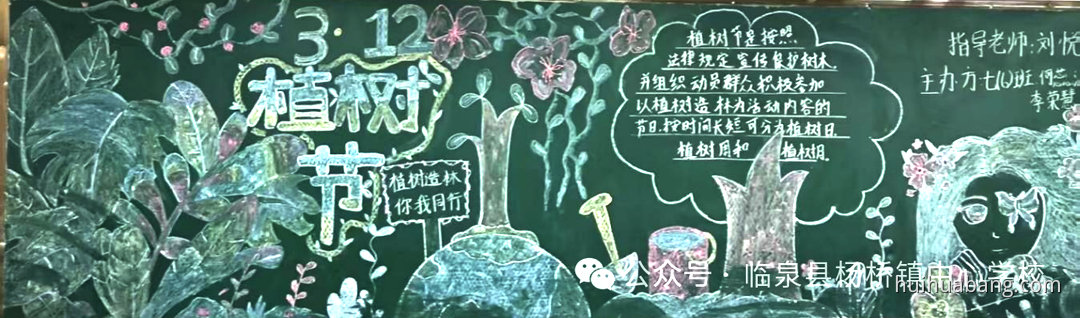 3.12
植树
节
植树造林
你我同行
植树节是按照
法律规定宣传保护树木,
并组织动员群众积极参加
以植树造林为活动内容的
节日.按时间长短可分为植树日
植树周和 植树月.
指导老师:刘悦
主办方七(1)班
李荣慧
公众号 临泉县杨桥镇中心学校
huihuabang.com